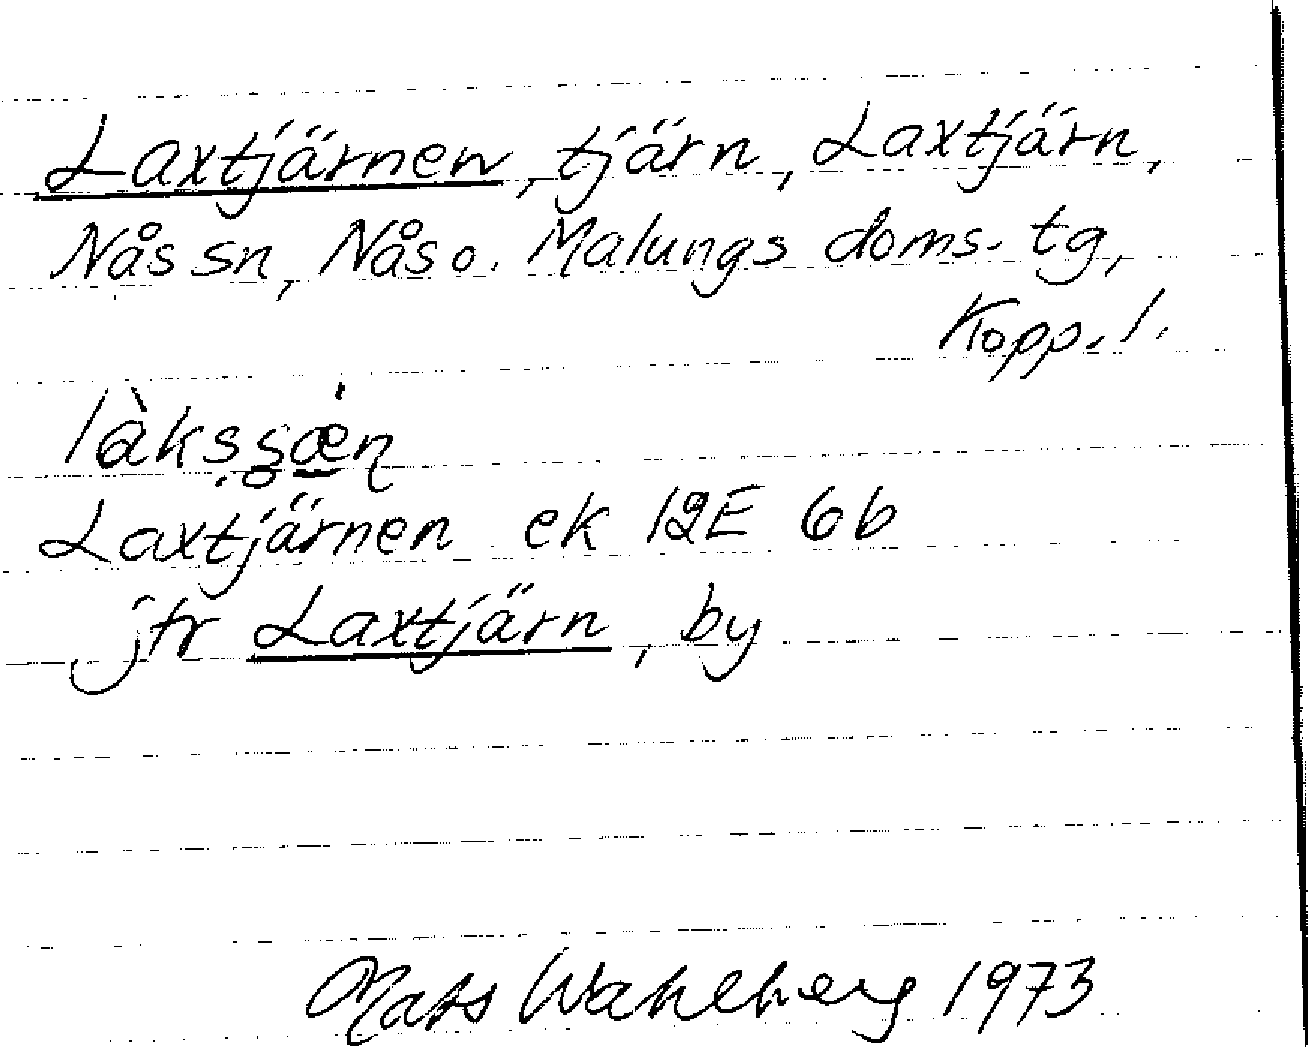 Laxtjärnen, tjärn, Laxtjärn,
Nås sn, Nås o. Malungs doms. tg,
Kopp. l.
Laxtjärnen ek 12E 6b
jfr Laxtjärn, by
Mats Wahlberg 1973